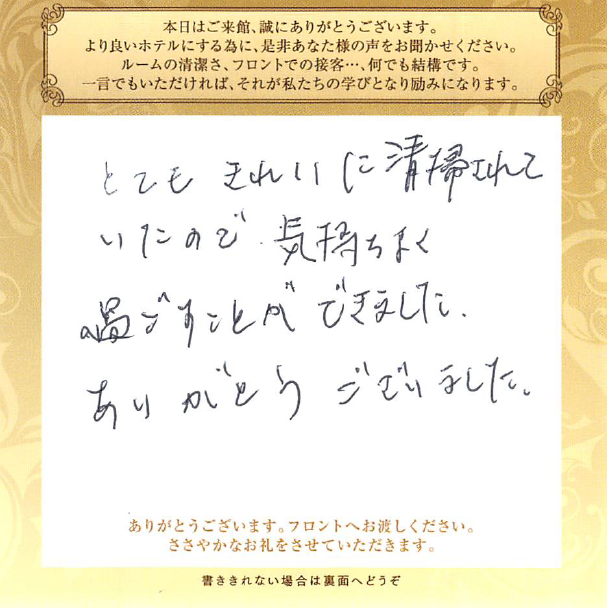 本日はご来館、誠にありがとうございます。
より良いホテルにする為に、是非あなた様の声をお聞かせください。
ルームの清潔さ、フロントでの接客…、何でも結構です。
一言でもいただければ、それが私たちの学びとなり励みになります。
とても きれいに清掃されて
いたので 気持ちよく
過ごすことができました。
ありがとうございました。
ありがとうございます。フロントへお渡しください。
ささやかなお礼をさせていただきます。
書ききれない場合は裏面へどうぞ